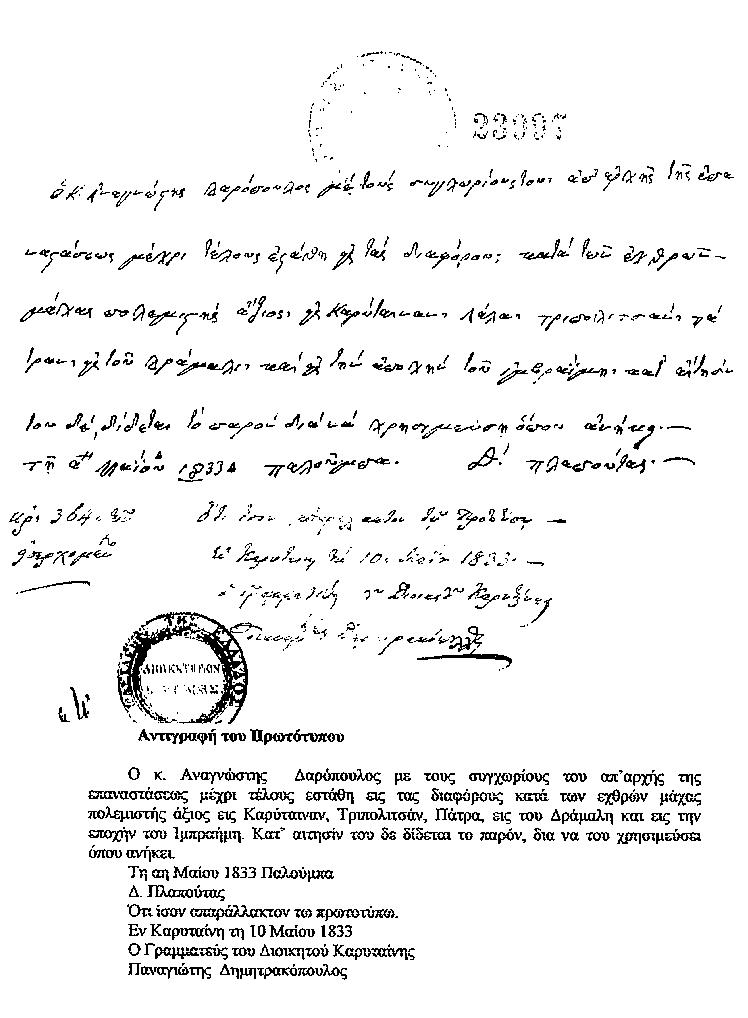 23097
Ὁ Κ. Ἀναγνώςης Δαρόπουλος μὲ τοὺς συγχωρίους του, ἀπ' ἀρχῆς τῆς ἐπα
ναςάσεως μέχρι τέλους ἐςάθη εἰς τὰς διαφόρους κατὰ τῶν ἐχθρῶν
μάχας πολεμιςὴς ἄξιος, εἰς Καρύταιναν, Λάλα, τριπολιτσάν, πά
τραν, εἰς τοῦ δράμαλι, καὶ εἰς τὴν ἐποχὴν τοῦ ἰμβραΐμη, κατ' αἴτησίν
του δὲ, δίδεται τὸ παρὸν διὰ νὰ χρησιμεύση ὅπου ἀνήκει.
τῇ αῃ Μαΐου 1833 παλούμπα. Δ. πλαπούτας.
ἀρ. 364.
Ὅτι ἴσον ἀπαράλλακτον τῷ πρωτοτύπῳ
Ἐν Καρυταίνῃ τῇ 10 Μαΐου 1833.
ὁ Γραμματεὺς τοῦ Διοικητοῦ Καρυταίνης
Παναγιώτης Δημητρακόπουλος
ΤΗΣ ΕΛΛΑΔΟΣ
Αντιγραφή του Πρωτότυπου
Ο κ. Αναγνώστης Δαρόπουλος με τους συγχωρίους του απ'αρχής της
επαναστάσεως μέχρι τέλους εστάθη εις τας διαφόρους κατά των εχθρών μάχας
πολεμιστής άξιος εις Καρύταιναν, Τριπολιτσάν, Πάτρα, εις του Δράμαλη και εις την
εποχήν του Ιμπραήμη. Κατ' αιτησίν του δε δίδεται το παρόν, δια να του χρησιμεύσει
όπου ανήκει.
Τη αη Μαίου 1833 Παλούμπα
Δ. Πλαπούτας
Ότι ίσον απαράλλακτον τω πρωτοτύπω.
Εν Καρυταίνη τη 10 Μαίου 1833
Ο Γραμματεύς του Διοικητού Καρυταίνης
Παναγιώτης Δημητρακόπουλος